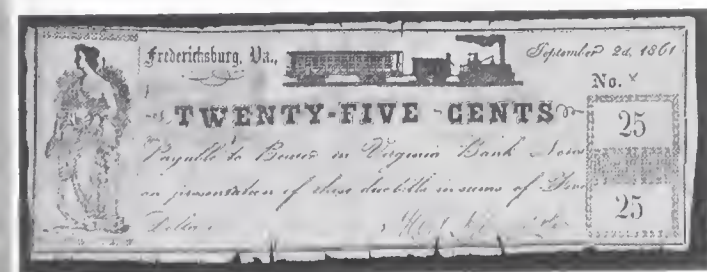 Fredericksburg, Va., September 2d, 1861
No.
TWENTY-FIVE CENTS
25
Payable to Bearer in Virginia Bank Notes
on presentation of these due bills in sums of
Dollars
25